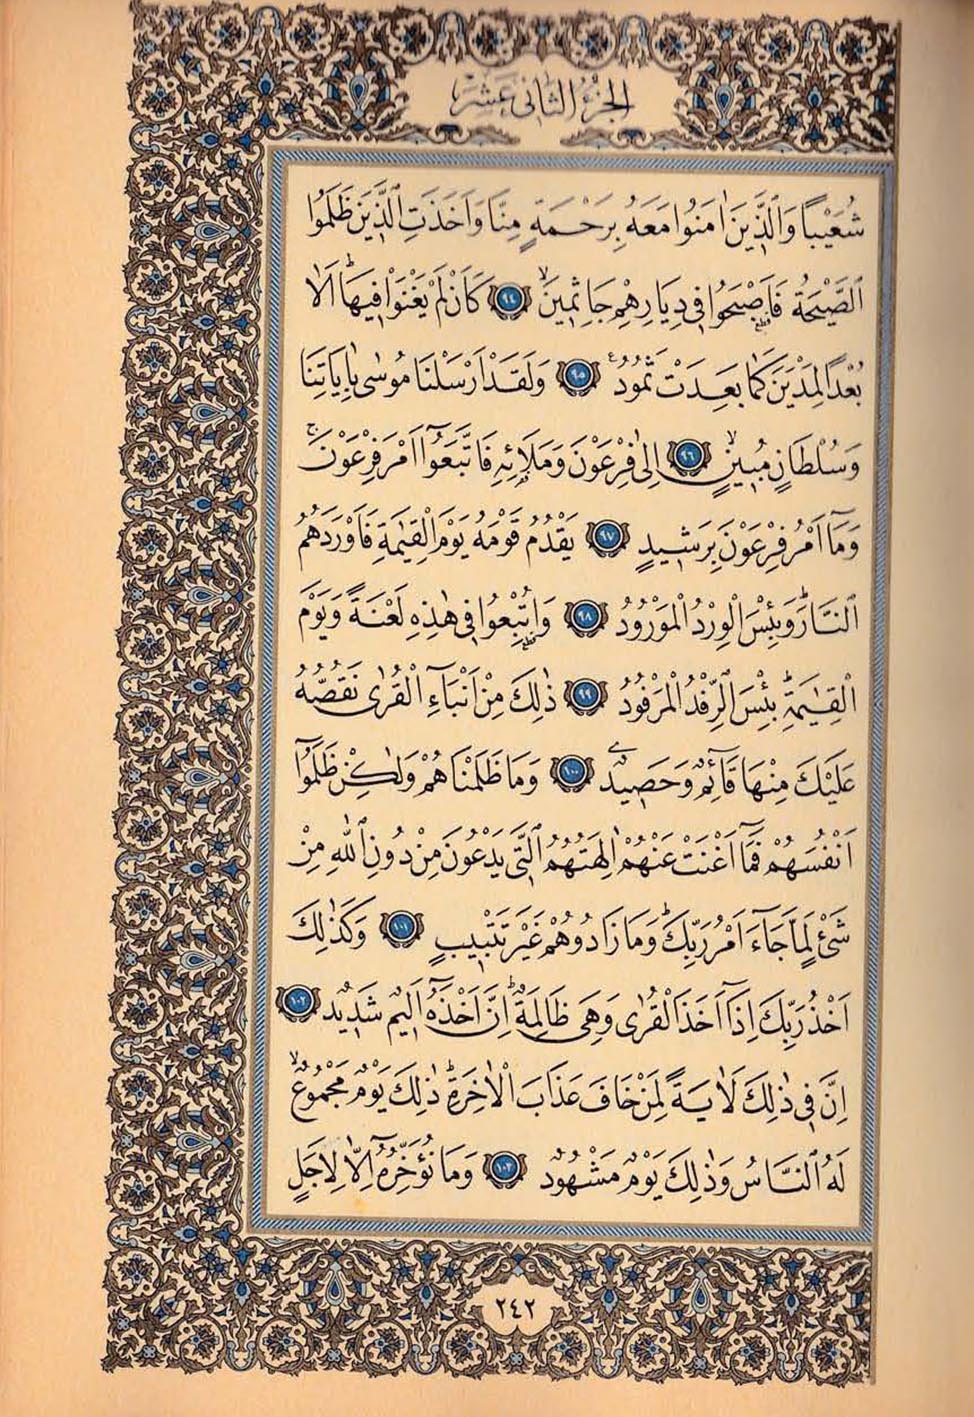 الجزء الثانى عشر
شُعَيْباً وَالَّذِينَ اٰمَنُوا مَعَهُ بِرَحْمَةٍ مِنَّا وَاَخَذَتِ الَّذِينَ ظَلَمُوا
الصَّيْحَةُ فَاَصْبَحُوا فِي دِيَارِهِمْ جَاثِمِينَۙ ٩٤ كَاَنْ لَمْ يَغْنَوْا فِيهَاۜ اَلَا
بُعْداً لِمَدْيَنَ كَمَا بَعِدَتْ ثَمُودُ ٩٥ وَلَقَدْ اَرْسَلْنَا مُوسٰى بِاٰيَاتِنَا
وَسُلْطَانٍ مُبِينٍۙ ٩٦ اِلٰى فِرْعَوْنَ وَمَلَا۬ئِهِ فَاتَّبَعُٓوا اَمْرَ فِرْعَوْنَۚ
وَمَٓا اَمْرُ فِرْعَوْنَ بِرَشِيدٍ ٩٧ يَقْدُمُ قَوْمَهُ يَوْمَ الْقِيٰمَةِ فَاَوْرَدَهُمُ
النَّارَۜ وَبِئْسَ الْوِرْدُ الْمَوْرُودُ ٩٨ وَاُتْبِعُوا فِي هٰذِهِ لَعْنَةً وَيَوْمَ
الْقِيٰمَةِۜ بِئْسَ الرِّفْدُ الْمَرْفُودُ ٩٩ ذٰلِكَ مِنْ اَنْبَٓاءِ الْقُرٰى نَقُصُّهُ
عَلَيْكَ مِنْهَا قَٓائِمٌ وَحَصِيدٌ ١٠٠ وَمَا ظَلَمْنَاهُمْ وَلٰكِنْ ظَلَمُٓوا
اَنْفُسَهُمْ فَمَٓا اَغْنَتْ عَنْهُمْ اٰلِهَتُهُمُ الَّتِي يَدْعُونَ مِنْ دُونِ اللّٰهِ مِنْ
شَيْءٍ لَمَّا جَٓاءَ اَمْرُ رَبِّكَۜ وَمَا زَادُوهُمْ غَيْرَ تَتْبِيبٍ ١٠١ وَكَذٰلِكَ
اَخْذُ رَبِّكَ اِذَٓا اَخَذَ الْقُرٰى وَهِيَ ظَالِمَةٌۜ اِنَّ اَخْذَهُٓ اَلِيمٌ شَدِيدٌ ١٠٢
اِنَّ فِي ذٰلِكَ لَاٰيَةً لِمَنْ خَافَ عَذَابَ الْاٰخِرَةِۜ ذٰلِكَ يَوْمٌ مَجْمُوعٌۙ
لَهُ النَّاسُ وَذٰلِكَ يَوْمٌ مَشْهُودٌ ١٠٣ وَمَا نُؤَخِّرُهُٓ اِلَّا لِاَجَلٍ
٢٤٢